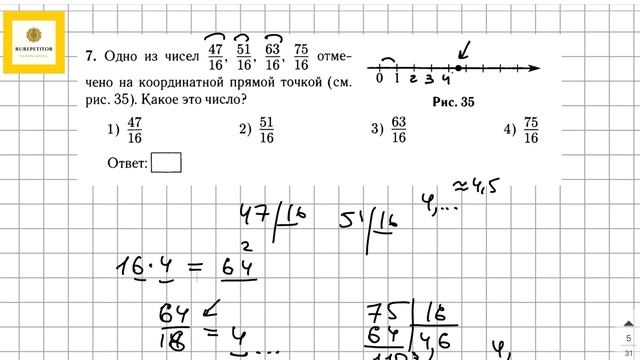 RUREPETITOR
7. Одно из чисел 47/16, 51/16, 63/16, 75/16 отме-
чено на координатной прямой точкой (см.
рис. 35). Какое это число?
0 1 2 3 4
Рис. 35
1) 47/16 2) 51/16 3) 63/16 4) 75/16
Ответ:
≈4,5
4,...
47 16 51 16
2
16 · 4 = 64
64/16 = 4...
75 16
64 4,6
4,
5
31